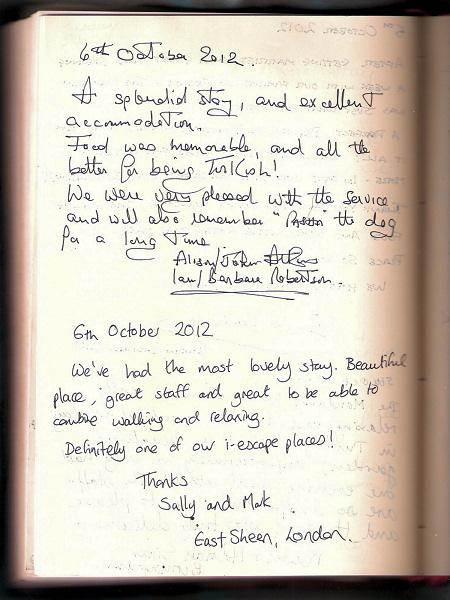 6th October 2012
A splendid stay, and excellent
accommodation.
Food was memorable, and all the
better for being Turkish!
We were very pleased with the service
and will also remember " " the dog
for a long time
Alison/John
Ian/Barbara Robertson.
6th October 2012
We've had the most lovely stay. Beautiful
place, great staff and great to be able to
combine walking and relaxing.
Definitely one of our i-escape places!
Thanks
Sally and Mark
East Sheen, London.